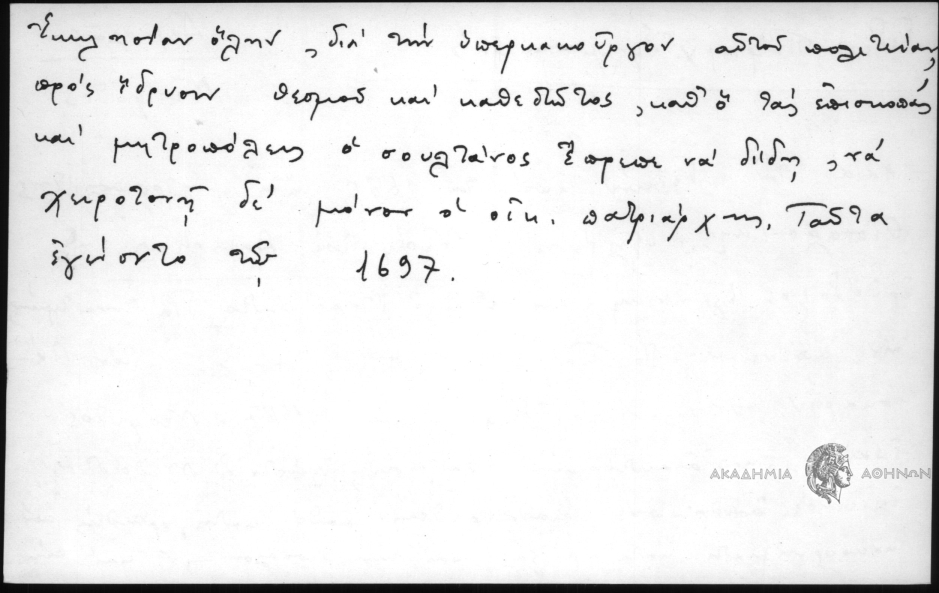 Ἐκκλησίαν ὅλην, διὰ τὴν ὑπερκακοῦργον αὐτοῦ πολιτείαν,
πρὸς ἵδρυσιν θεσμοῦ καὶ καθεστῶτος, καθ' ὃ τὰς ἐπισκοπὰς
καὶ μητροπόλεις ὁ σουλτάνος ἔπρεπε νὰ δίδῃ, νὰ
χειροτονῇ δὲ μόνον ὁ οἰκ. πατριάρχης. Ταῦτα
ἐγένοντο τῷ 1697.
ΑΚΑΔΗΜΙΑ ΑΘΗΝΩΝ